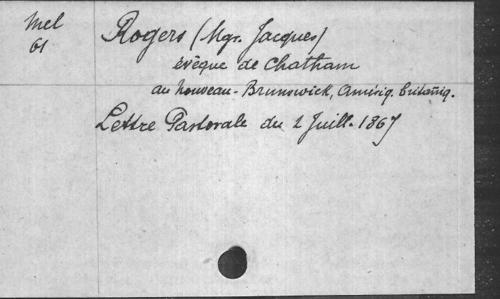 Mel
61
Rogers (Mgr. Jacques)
évêque de Chatham
au Nouveau-Brunswick, Amériq. britanniq.
Lettre Pastorale du 2 Juill. 1867